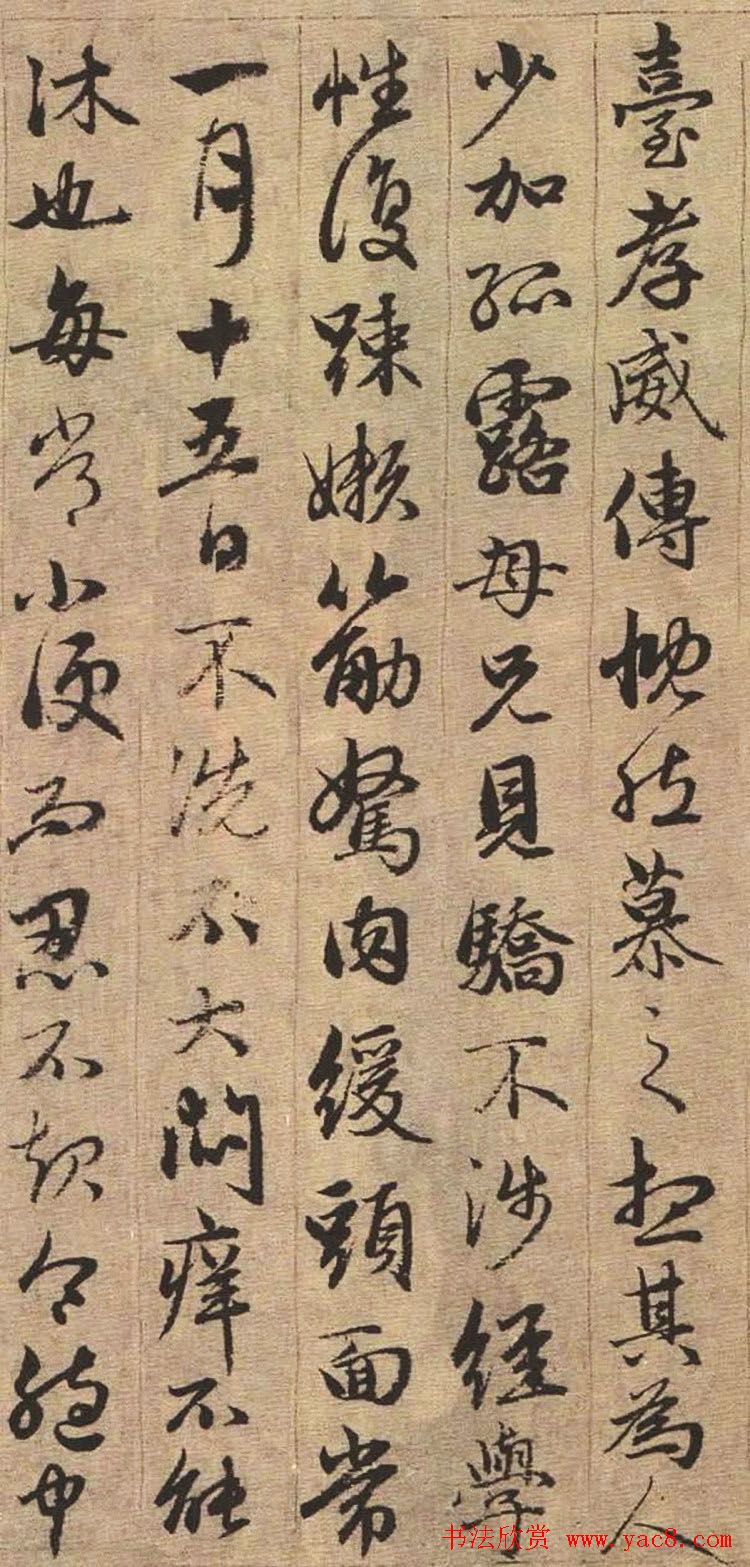 臺孝威傳慨然慕之想其為人
少加孤露母兄見驕不涉經學
性復疎嬾筋駑肉緩頭面常
一月十五日不洗不大悶痒不能
沐也每常小便而忍不起令胞中
书法欣赏 www.yac8.com